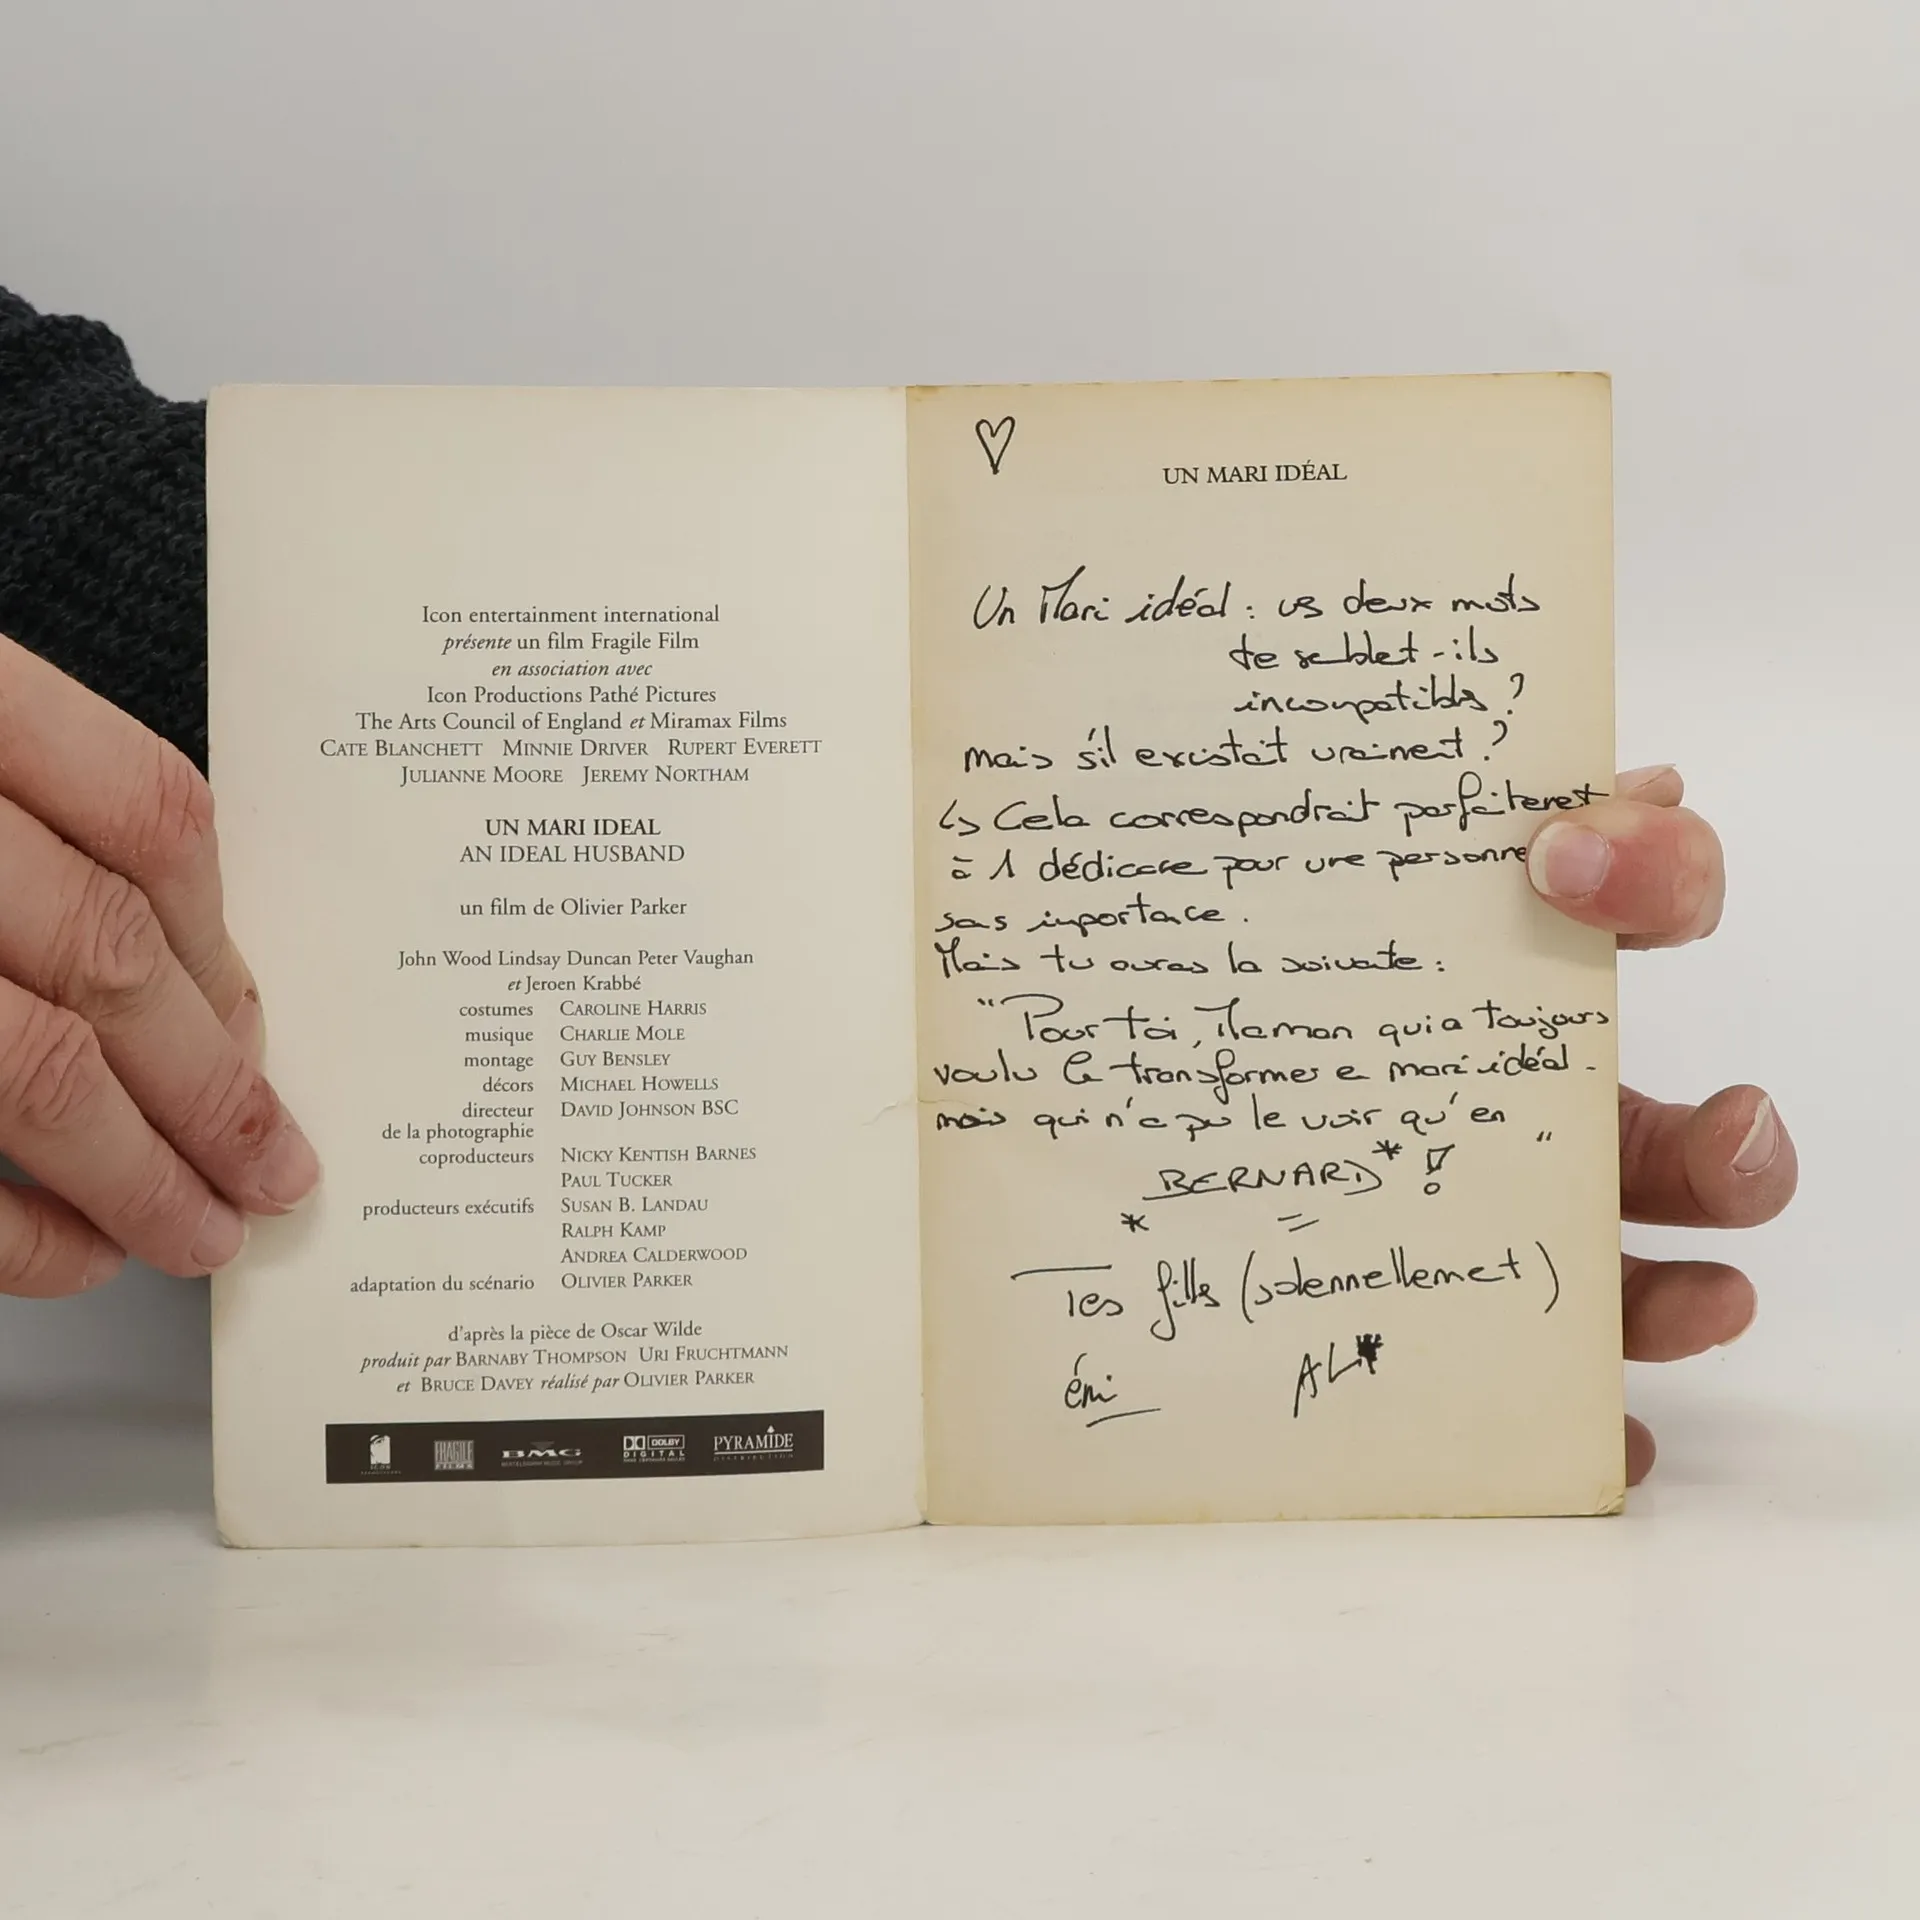 Icon entertainment international
présente un film Fragile Film
en association avec
Icon Productions Pathé Pictures
The Arts Council of England et Miramax Films
CATE BLANCHETT MINNIE DRIVER RUPERT EVERETT
JULIANNE MOORE JEREMY NORTHAM
UN MARI IDEAL
AN IDEAL HUSBAND
un film de Olivier Parker
John Wood Lindsay Duncan Peter Vaughan
et Jeroen Krabbé
costumes CAROLINE HARRIS
musique CHARLIE MOLE
montage GUY BENSLEY
décors MICHAEL HOWELLS
directeur DAVID JOHNSON BSC
de la photographie
coproducteurs NICKY KENTISH BARNES
PAUL TUCKER
producteurs exécutifs SUSAN B. LANDAU
RALPH KAMP
ANDREA CALDERWOOD
adaptation du scénario OLIVIER PARKER
d'après la pièce de Oscar Wilde
produit par BARNABY THOMPSON URI FRUCHTMANN
et BRUCE DAVEY réalisé par OLIVIER PARKER
FRAGILE BMG DOLBY DIGITAL PYRAMIDE
UN MARI IDÉAL
Un Mari idéal : ces deux mots
te semblent-ils
incompatibles ?
mais s'il existait vraiment ?
↳ Cela correspondrait parfaitement
à 1 dédicace pour une personne
sans importance.
Mais tu auras la suivante :
"Pour toi, Maman qui a toujours
voulu le transformer en mari idéal.
mais qui n'a pu le voir qu'en
BERNARD* ! "
* =
Tes filles (solennellement)
émi ALI